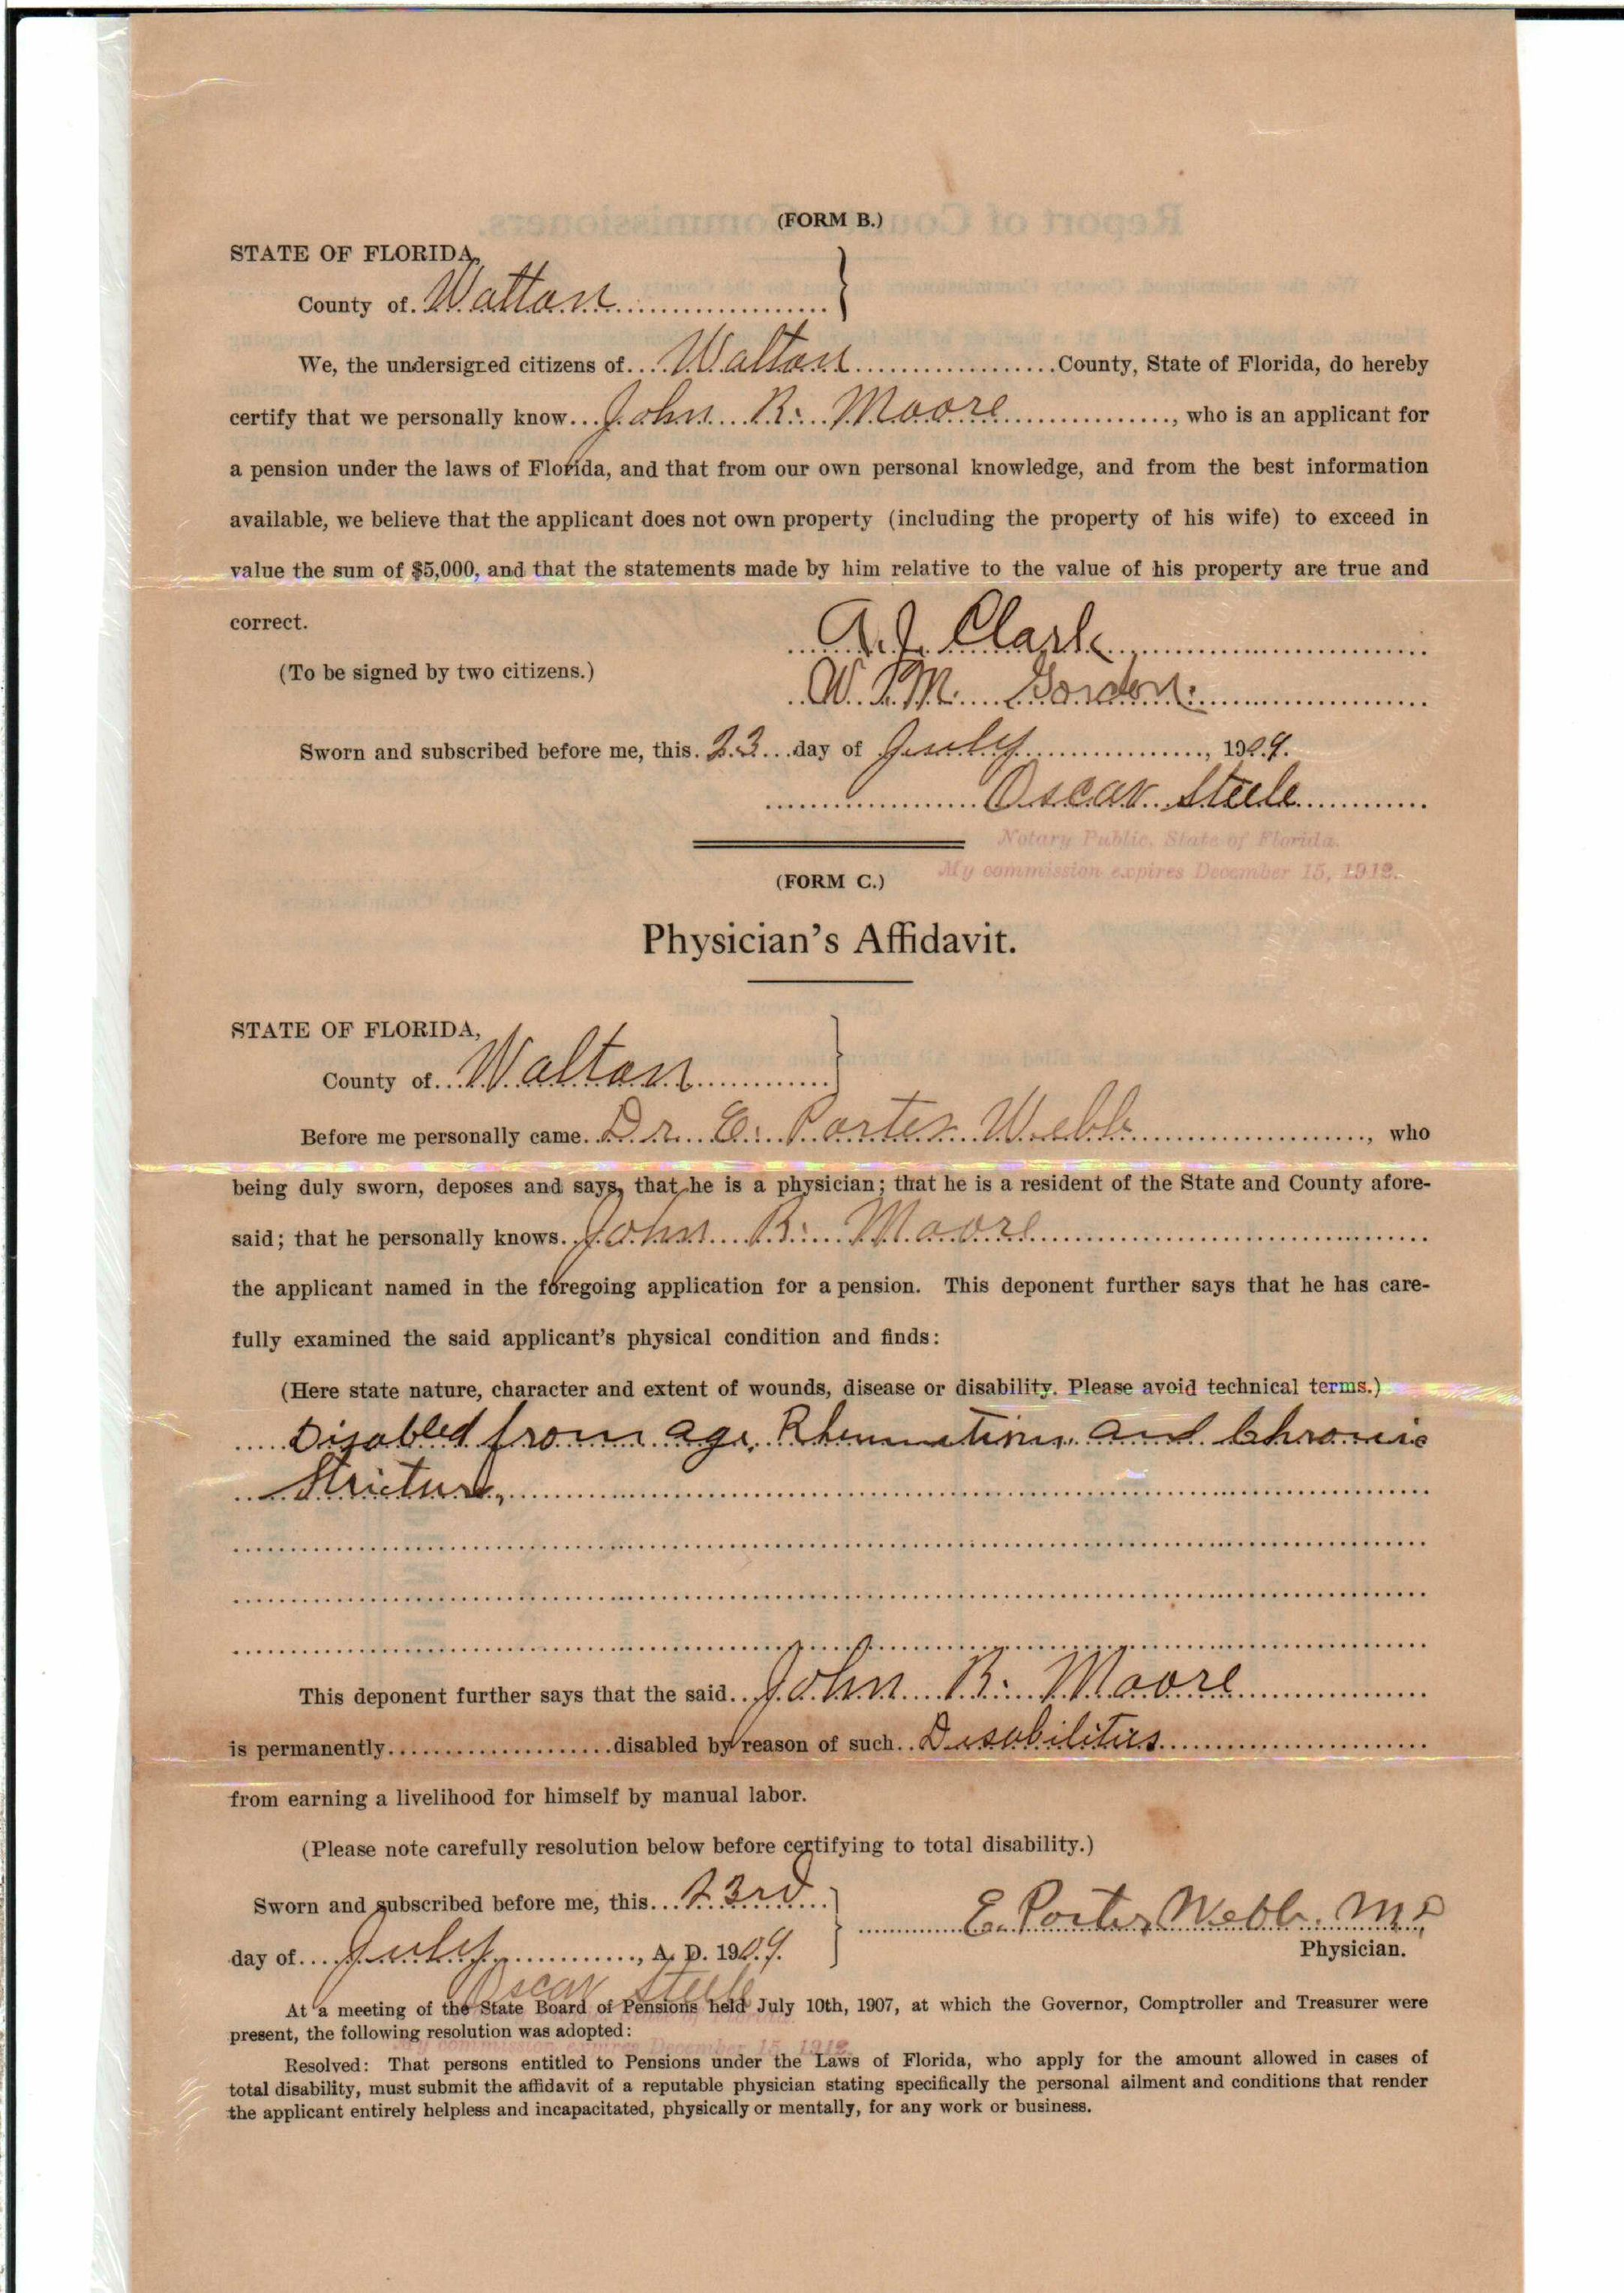 (FORM B.)
STATE OF FLORIDA,
County of Walton
We, the undersigned citizens of Walton County, State of Florida, do hereby
certify that we personally know John R. Moore, who is an applicant for
a pension under the laws of Florida, and that from our own personal knowledge, and from the best information
available, we believe that the applicant does not own property (including the property of his wife) to exceed in
value the sum of $5,000, and that the statements made by him relative to the value of his property are true and
correct.
A. J. Clark
(To be signed by two citizens.)
Gordon
Sworn and subscribed before me, this 23 day of July, 1909.
Oscar Steele
Notary Public, State of Florida.
My commission expires December 15, 1912.
(FORM C.)
Physician's Affidavit.
STATE OF FLORIDA,
County of Walton
Before me personally came Dr. E. Porter Webb, who
being duly sworn, deposes and says, that he is a physician; that he is a resident of the State and County afore-
said; that he personally knows John R. Moore
the applicant named in the foregoing application for a pension. This deponent further says that he has care-
fully examined the said applicant's physical condition and finds:
(Here state nature, character and extent of wounds, disease or disability. Please avoid technical terms.)
Disabled from age, Rheumatism and Chronic
Stricture,
This deponent further says that the said John R. Moore
is permanently disabled by reason of such Disabilities
from earning a livelihood for himself by manual labor.
(Please note carefully resolution below before certifying to total disability.)
Sworn and subscribed before me, this 23rd
E. Porter Webb. M.D.
day of July, A. D. 1909.
Physician.
Oscar Steele
At a meeting of the State Board of Pensions held July 10th, 1907, at which the Governor, Comptroller and Treasurer were
State of Florida.
present, the following resolution was adopted:
My commission expires December 15, 1912.
Resolved: That persons entitled to Pensions under the Laws of Florida, who apply for the amount allowed in cases of
total disability, must submit the affidavit of a reputable physician stating specifically the personal ailment and conditions that render
the applicant entirely helpless and incapacitated, physically or mentally, for any work or business.